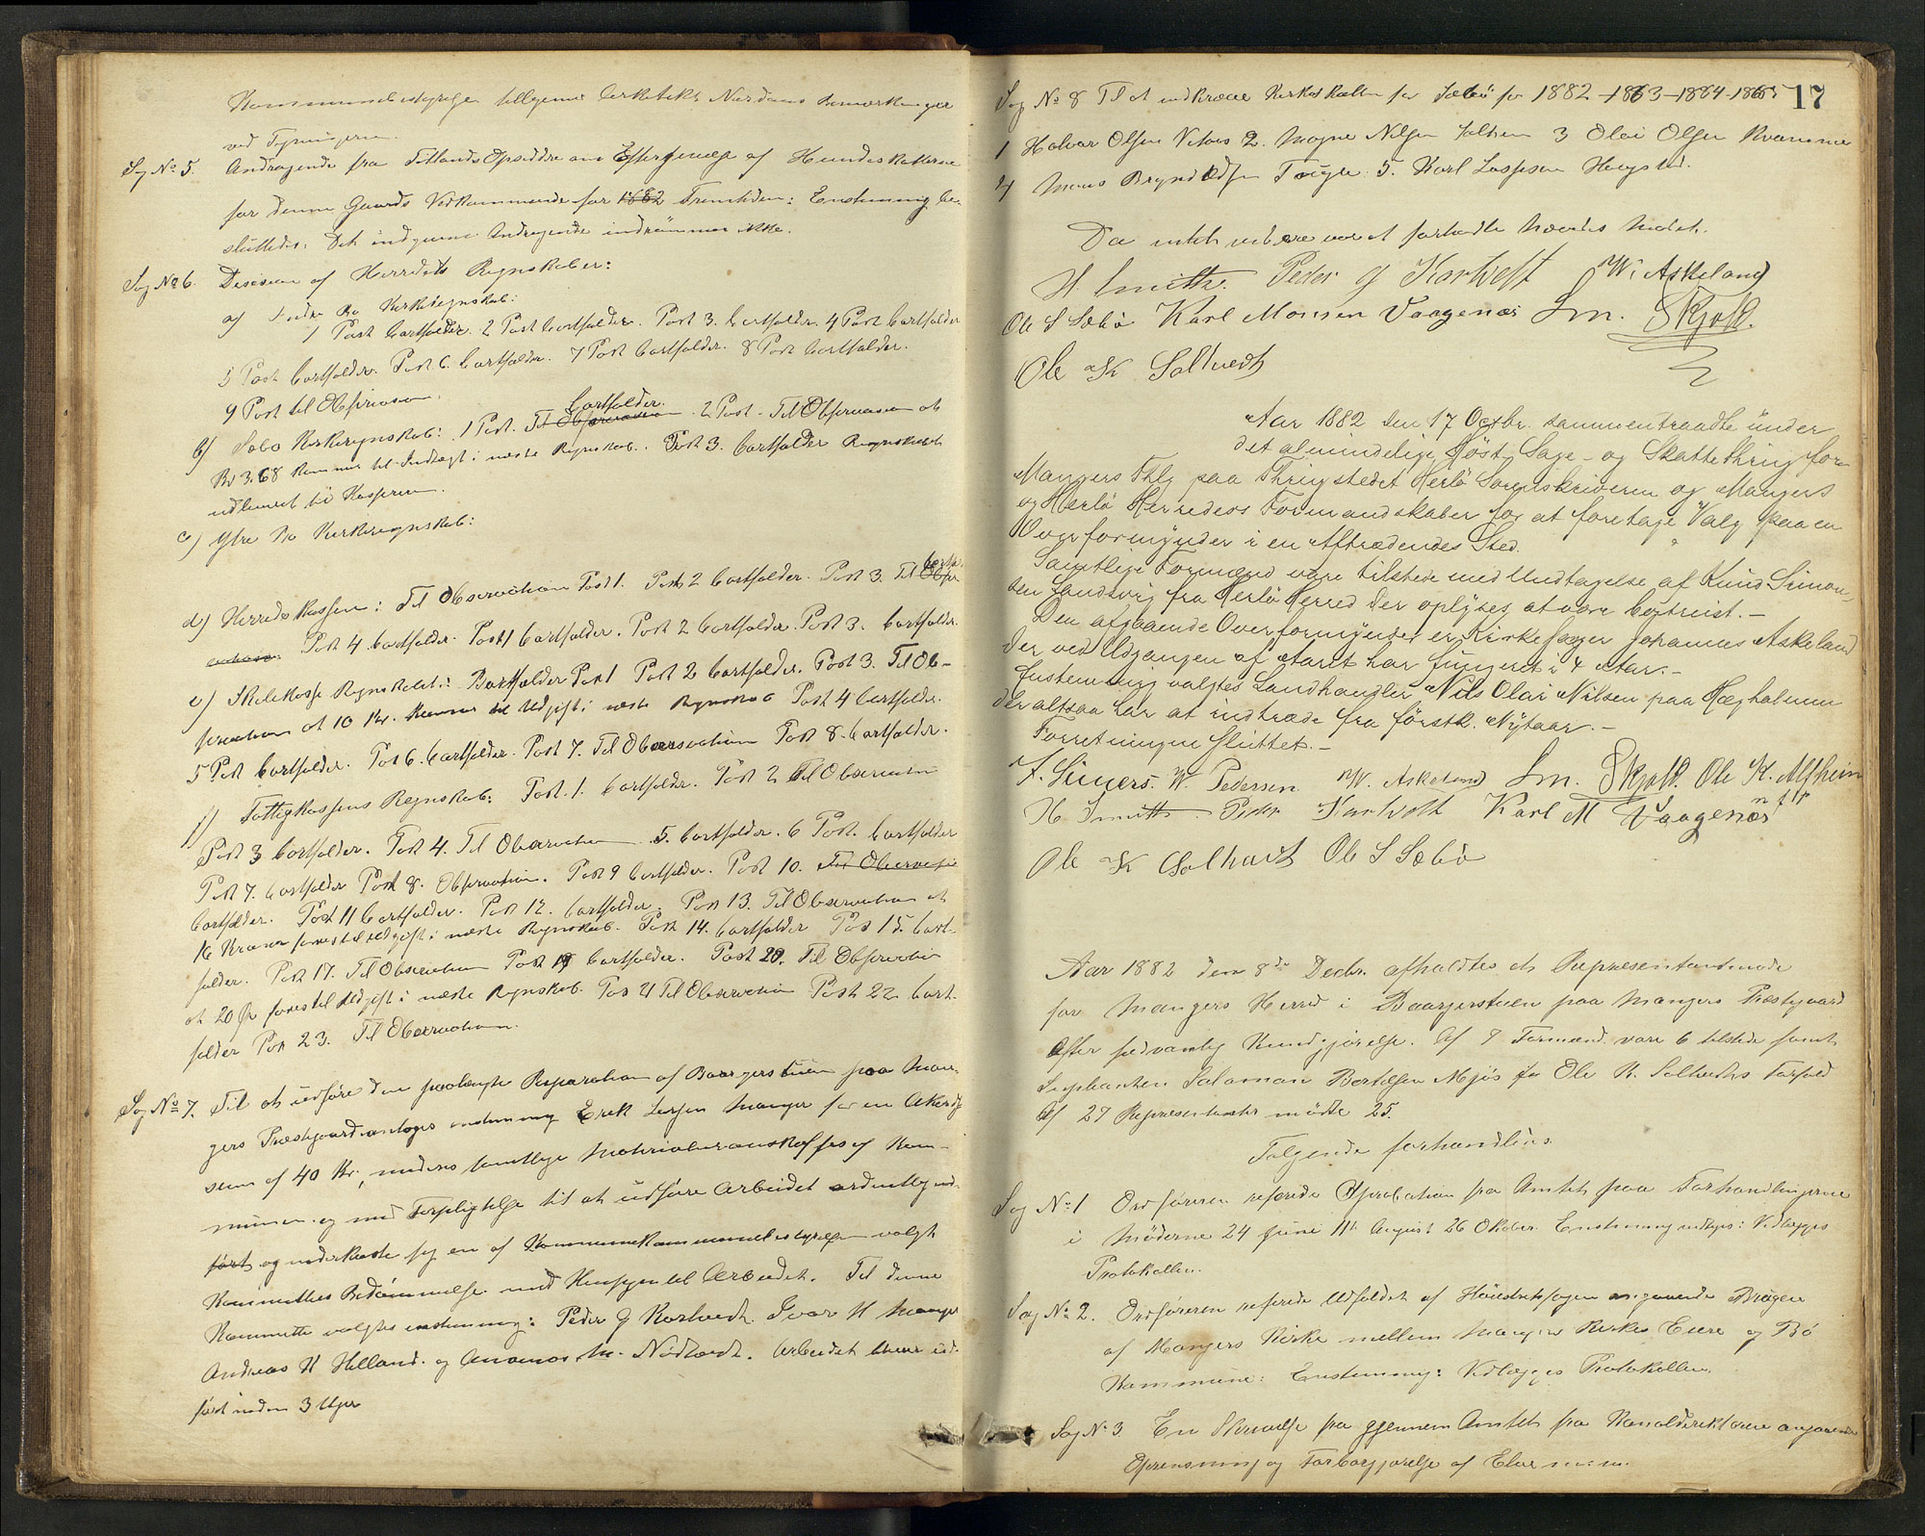 Kommunebestyrelsen tillegnes Arkitekt Nordans Bemærkninger
ved Tegningerne.
Sag No 5. Andragende fra Titlands Opsiddere om Eftergivelse af Hundeskatten
for denne Gaards Vedkommende for 1882 Fremtiden: Enstemmig be-
sluttedes: Det indgivne Andragende indrømmes ikke.
Sag No 6. Decision af Herredets Regnskaber:
a) Indre Bø Kirkeregnskab:
1 Post bortfalder. 2 Post bortfalder. Post 3. bortfalder. 4 Post bortfalder
5 Post bortfalder. Post 6. bortfalder. 7 Post bortfalder. 8 Post bortfalder.
9 Post til Observation.
bortfalder.
b) Sæbø Kirkeregnskab: 1 Post. Til Observation. 2 Post. Til Observation at
Kr 3.68 kommer til Indtægt i næste Regnskab. Post 3. bortfalder Regnskabet
udlaant til Kasseren.
c) Ytre Bø Kirkeregnskab:
d) Herredskassen: Til Observation Post 1. Post 2 bortfalder. Post 3. Til Obser-
Post 4 bortfalder. Post 1 bortfalder. Post 2 bortfalder. Post 3. bortfalder.
e) Skolekasse Regnskabet: Bortfalder Post 1 Post 2 bortfalder. Post 3. Til Ob-
servation at 10 Kr. kommer til Udgift i næste Regnskab Post 4 bortfalder.
5 Post bortfalder. Post 6. bortfalder. Post 7. Til Observation Post 8. bortfalder.
f) Fattigkassens Regnskab: Post 1. bortfalder. Post 2 Til Observation
Post 3 bortfalder. Post 4. Til Observation 5. bortfalder. 6 Post. bortfalder
Post 7. bortfalder Post 8. Observation. Post 9 bortfalder. Post 10. Til Observation
bortfalder. Post 11 bortfalder. Post 12. bortfalder. Post 13. Til Observation at
16 Kroner føres til Udgift i næste Regnskab. Post 14. bortfalder Post 15. bort-
falder. Post 17. Til Observation Post 19 bortfalder. Post 20. Til Observation
at 20 Ør føres til Udgift i næste Regnskab. Post 21 Til Observation Post 22 bort-
falder Post 23. Til Observation.
Sag No 7. Til at udføre den paatænkte Reparation af Baargerstuen paa Man-
gers Præstegaard antoges enstemmig Erik Manger for en Akords
sum af 40 Kr, medens samtlige Materialier anskaffes af Kom-
munen og med Forpligtelse til at udføre Arbeidet ordentlig ud-
ført og underkaste sig en af Kommunebestyrelsen valgt
Kommittes Bedømmelse med Hensyn til Arbeidet. Til denne
Kommitte valgtes enstemmig: Peder J Kartvedt. Ivar H Manger
Andreas H Helland. og M. Nødtvedt. Arbeidet bliver ud-
ført inden 3 Uger
17
Sag No 8 Til at indkræve Kirkeskatten for Sæbø for 1882-1883-1884-1885
1 Halvor Olsen 2. Mogne Nilsen 3 Olai Olsen Kvamme
4 Mons 5. Karl Høgsted.
Da intet videre var at forhandle hævedes Mødet.
H Smitth. Peder J Kartveft W. Askeland
Ole S Sæbø Karl Monsen Vaagenæs Lm. Skjold.
Ole K Solhvedt
Aar 1882 den 17 Octbr. sammentraadte under
det almindelige Høst, Sage- og Skattething for
Mangers Thlg paa Thingstedet Herlø Sorenskriveren og Mangers
og Herlø Herreders Formandskaber for at foretage Valg paa en
Overformynder i en Aftrædendes Sted.
Samtlige Formænd vare tilstede med Undtagelse af Knud Simon-
sen Landsvig fra Herlø Herred der oplyses at være bortreist.-
Den afgaaende Overformynder er Kirkesanger Johannes Askeland
der ved Udgangen af Aaret har fungeret i 4 Aar.-
Enstemmig valgtes Landhandler Nils Olai Nilsen paa Hægholmen
der altsaa har at indtræde fra førstk. Nytaar.-
Forretningen sluttet.-
F. Siuers. W. Pedersen W. Askeland Lm. Skjold. Ole K. Alfheim
H. Smitth. Peder Kartvedt Karl M Vaagenæs
Ole K Solhvedt Ole S Sæbø
Aar 1882 den 8de Decbr. afholdtes et Repræsentantmøde
for Mangers Herred i Baargerstuen paa Mangers Præstegaard
efter sedvanlig Kundgjørelse. Af 7 Formænd vare 6 tilstede samt
Suppleanten Salamon Bertelsen Mjøs for Ole K. Solhvedts Forfald
Af 27 Repræsentanter mødte 25.
Følgende forhandledes.
Sag No 1 Ordføreren refererede Approbation fra Amtet paa Forhandlingerne
i Møderne 24 Juni 11te August 26 Oktober. Enstemmig vedtoges: Vedlægges
Protokollen.
Sag No 2. Ordføreren refererede Udfaldet af Høiesteretssagen angaaende Brugen
af Mangers Kirke mellem Manger Kirkes Eiere og Bø
Kommune: Enstemmig: Vedlægges Protokollen.
Sag No 3 En Skrivelse fra gjennem Amtet fra Kanaldirektøren angaaende
Oprensning og Farbargjørelse af Elve m: m.